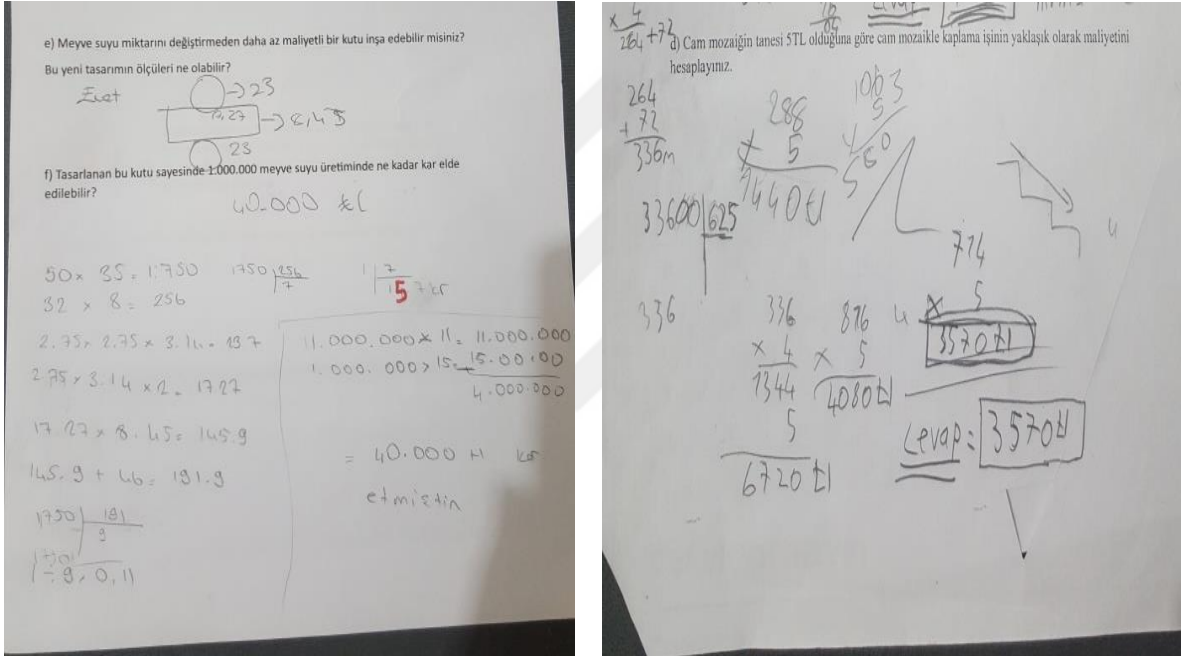 e) Meyve suyu miktarını değiştirmeden daha az maliyetli bir kutu inşa edebilir misiniz?
Bu yeni tasarımın ölçüleri ne olabilir?
Evet
23
17,27
8,45
23
f) Tasarlanan bu kutu sayesinde 1.000.000 meyve suyu üretiminde ne kadar kar elde
edilebilir?
40.000 tl
50 x 35 = 1.750
1750 256
7
1 7
15 7 kr
32 x 8 = 256
2.75 x 2.75 x 3.14 = 137
2.75 x 3.14 x 2 = 1727
17.27 x 8.45 = 145.9
145.9 + 46 = 191.9
1750 191
9
1 ÷ 9 = 0,11
11.000.000 x 11 = 11.000.000
1.000.000 x 15 = 15.00.00
4.000.000
= 40.000 tl kar
etmiştin
x 4
264 +72
d) Cam mozaiğin tanesi 5TL olduğuna göre cam mozaikle kaplama işinin yaklaşık olarak maliyetini
hesaplayınız.
264
+ 72
336m
288
x 5
1440tl
1063
5
33600 625
714
x 5
3570tl
336
336
x 4
1344
5
6720tl
816
x 5
4080tl
4
Cevap = 3570tl